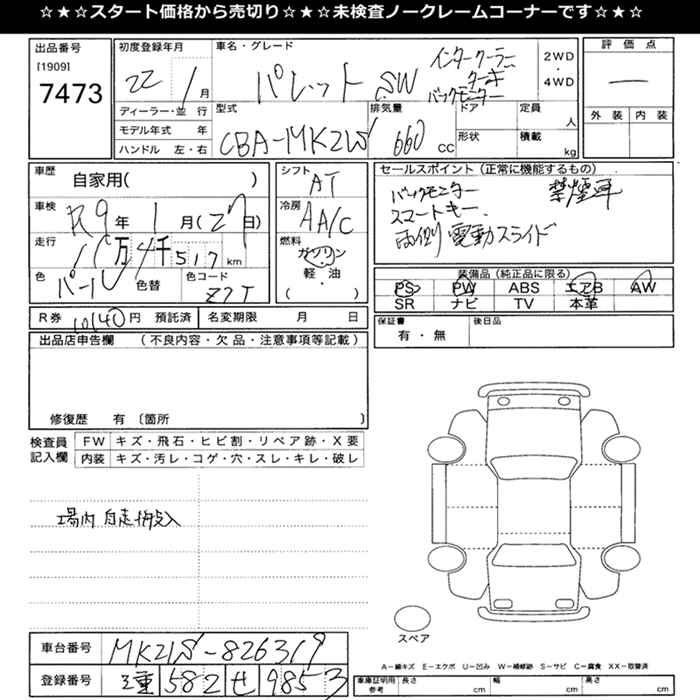 ☆★☆★スタート価格から売切り☆★☆★未検査ノークレームコーナーです☆★☆★
出品番号
[1909]
7473
初度登録年月
22 1月
車名・グレード
パレット SW
インタークーラー
ターボ
バックモニター
2WD
・
4WD
評価点
外装 内装
ディーラー・並行
モデル年式 年
ハンドル 左・右
型式
CBA-MK21S
排気量
660 CC
ドア
形状
定員
人
積載
kg
車歴
自家用( )
車検
R9年 1月(27日)
走行
11万4千517km
色
パール
色替
色コード
Z7T
シフト
AT
冷房
AA/C
燃料
ガソリン
軽・油
( ・ )
セールスポイント(正常に機能するもの)
バックモニター
禁煙車
スマートキー
両側電動スライド
装備品(純正品に限る)
PS PW ABS エアB AW
SR ナビ TV 本革
R券 10140円 預託済
名変期限 月 日
保証書
有・無
後日品
出品店申告欄 (不良内容・欠品・注意事項等記載)
修復歴 有 〔箇所 〕
検査員
記入欄
FW キズ・飛石・ヒビ割・リペア跡・X要
内装 キズ・汚レ・コゲ・穴・スレ・キレ・破レ
場内 自走搬入
スペア
車台番号 MK21S-826319
登録番号 三重 582 せ 9853
A－線キズ E－エクボ U－凹み W－補修跡 S－サビ C－腐食 XX－取替済
車庫証明用
参考
長さ cm
幅 cm
高さ cm